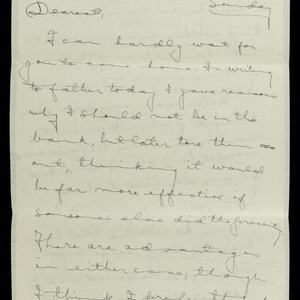 Sunday
Dearest,
I can hardly wait for
you to come home. In writing
to father today I gave reasons
why I should not be in the
bank, but later tore them
out, thinking it would
be far more effective if
someone else did the
There are advantages
in either case, though
I think I prefer